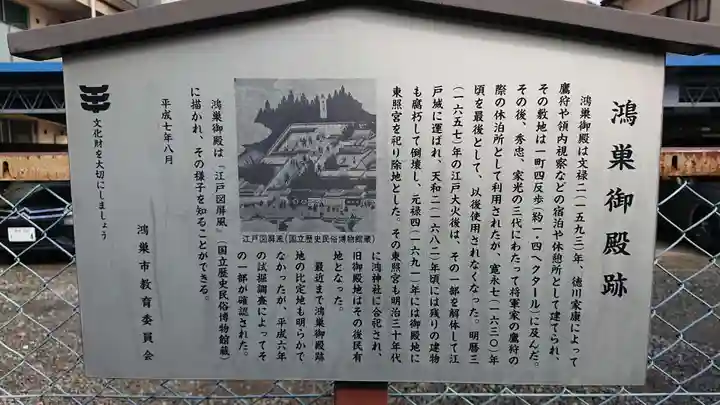 鴻巣御殿跡
鴻巣御殿は文禄二(一五九三)年、徳川家康によって
鷹狩や領内視察などの宿泊や休憩所として建てられ、
その敷地は一町四反歩(約一・四ヘクタール)に及んだ。
その後、秀忠、家光の三代にわたって将軍家の鷹狩の
際の休泊所として利用されたが、寛永七(一六三〇)年
頃を最後として、以後使用されなくなった。明暦三
(一六五七)年の江戸大火後は、その一部を解体して江
戸城に運ばれ、天和二(一六八二)年頃には残りの建物
も腐朽して倒壊し、元禄四(一六九一)年には御殿地に
東照宮を祀り除地とした。その東照宮も明治三十年代
に鴻神社に合祀され、
旧御殿地はその後民有
地となった。
最近まで鴻巣御殿跡
地の比定地も明らかで
なかったが、平成六年
の試掘調査によってそ
の一部が確認された。
江戸図屏風(国立歴史民俗博物館蔵)
鴻巣御殿は「江戸図屏風」(国立歴史民俗博物館蔵)
に描かれ、その様子を知ることができる。
平成七年八月
鴻巣市教育委員会
文化財を大切にしましょう